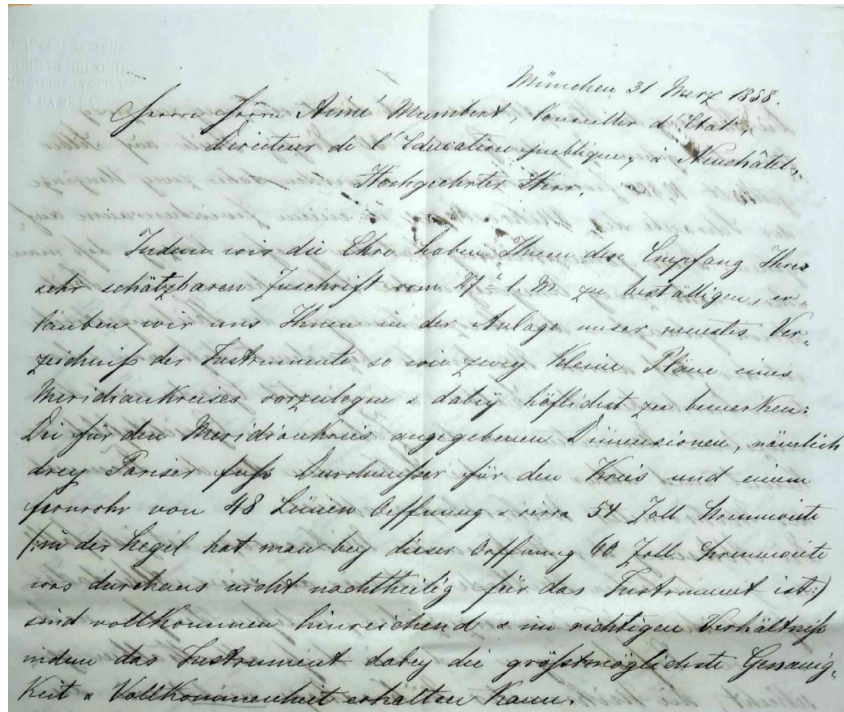 München 31 Merz 1858.
Herrn Herrn Aimé Humbert, Conseiller d'Etat,
Directeur de l'Education publique, à Neuchâtel,
Hochgeehrter Herr.
Indem wir die Ehre haben Ihnen den Empfang Ihrer
sehr schätzbaren Zuschrift vom 27t l. M. zu bestättigen, er-
lauben wir uns Ihnen in der Anlage unser neustes Ver-
zeichniß der Instrumente so wie zwey kleine Pläne eines
Meridiankreises vorzulegen & dabey höflichst zu bemerken:
Die für den Meridiankreis angegebenen Dimensionen, nämlich
drey Pariser Fuß Durchmesser für den Kreis und einem
Fernrohr von 48 Linien Oeffnung & circa 54 Zoll Brennweite
(:in der Regel hat man bey dieser Oeffnung 60 Zoll Brennweite
was durchaus nicht nachtheilig für das Instrument ist:)
sind vollkommen hinreichend & im richtigen Verhältniß
indem das Instrument dabey die größtmöglichste Genauig-
keit & Vollkommenheit erhalten kann.